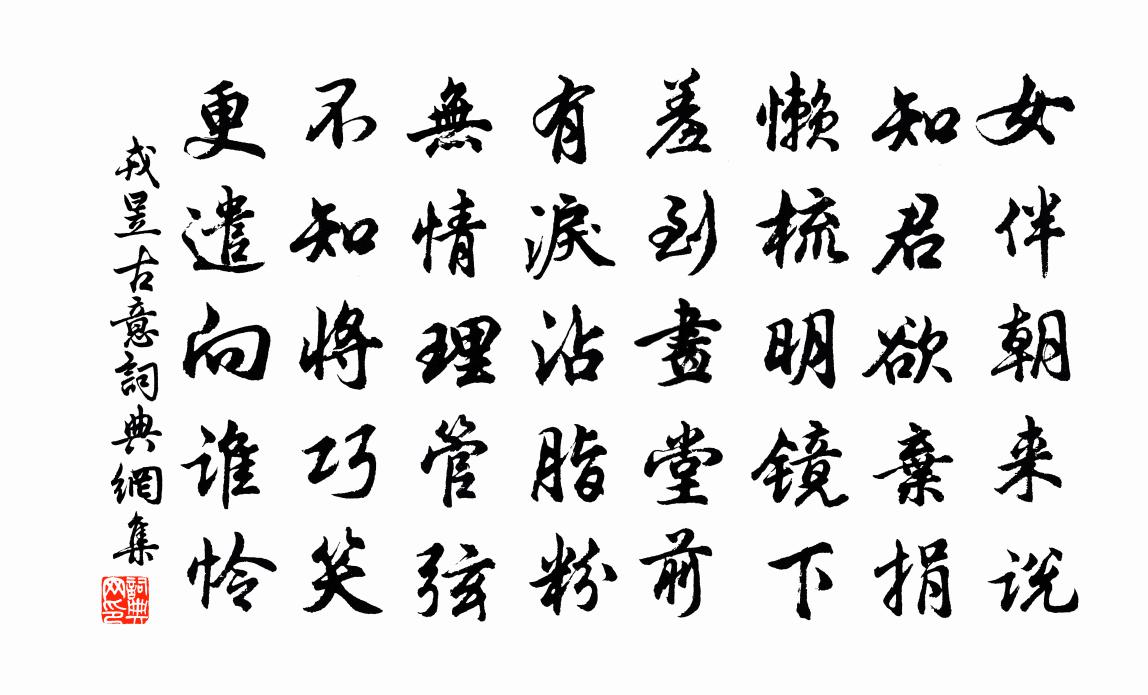 女伴朝来说
知君欲棄捐
懒梳明镜下
羞到畫堂前
有淚沾脂粉
無情理管弦
不知将巧笑
更遣向谁怜
戎昱古意詞典網集
詞典网印